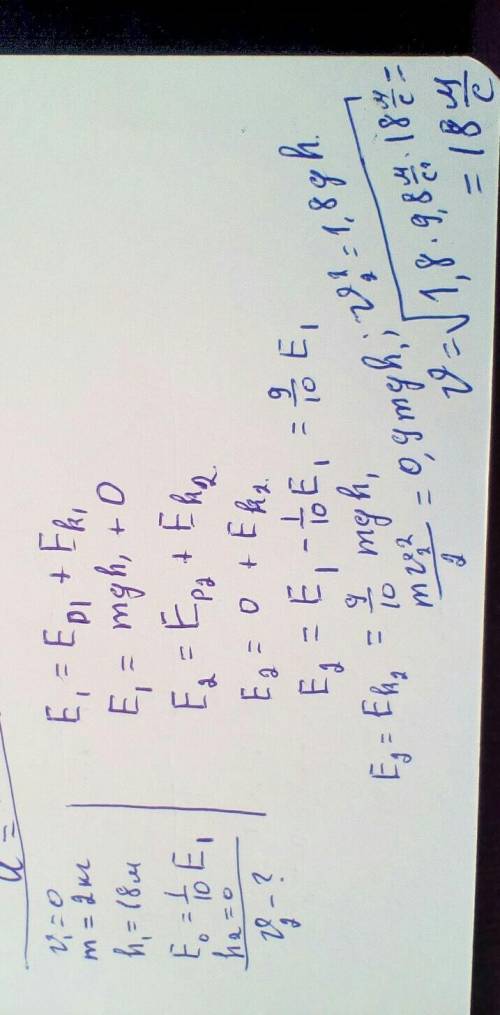 u =
v₁ = 0
m = 2 кг
h₁ = 18 м
E₀ = 1/10 E₁
h₂ = 0
v₂ - ?
E₁ = Eр₁ + Eк₁
E₁ = mgh₁ + 0
E₂ = Eр₂ + Eк₂
E₂ = 0 + Eк₂
E₂ = E₁ - 1/10 E₁ = 9/10 E₁
E₂ = Eк₂ = 9/10 mgh₁
mv₂²/2 = 0,9 mgh₁ ; v₂² = 1,8gh
v = √1,8 · 9,8 м/с · 18 м/с =
= 18 м/с